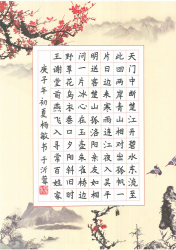 天门中断楚江开碧水东流至
此回两岸青山相对出孤帆一
片日边来寒雨连江夜入吴平
明送客楚山孤洛阳亲友如相
问一片冰心在玉壶朱雀桥边
野草花乌衣巷口夕阳斜旧时
王谢堂前燕飞入寻常百姓家
庚子年初夏杨敏书于沂蒙